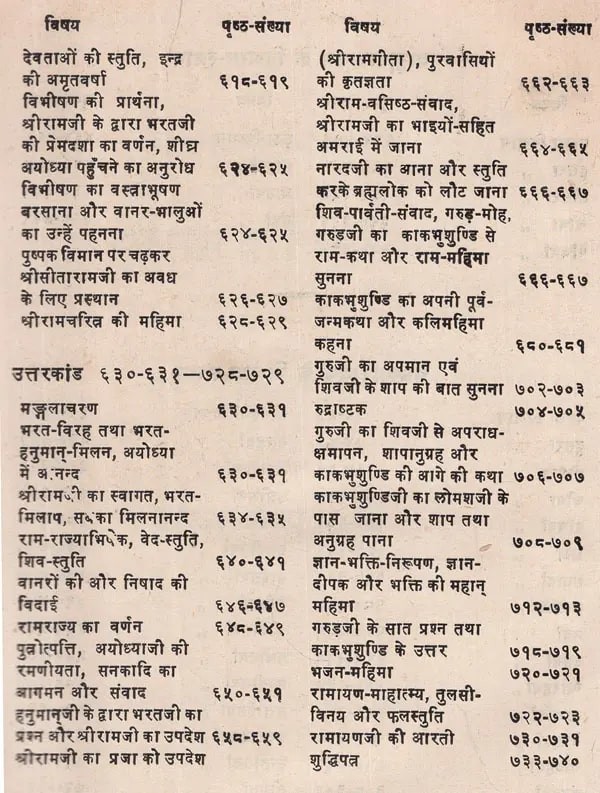 विषय पृष्ठ-संख्या
देवताओं की स्तुति, इन्द्र
की अमृतवर्षा ६१८-६१९
विभीषण की प्रार्थना,
श्रीरामजी के द्वारा भरतजी
की प्रेमदशा का वर्णन, शीघ्र
अयोध्या पहुँचने का अनुरोध ६२४-६२५
विभीषण का वस्त्राभूषण
बरसाना और वानर-भालुओं
का उन्हें पहनना ६२४-६२५
पुष्पक विमान पर चढ़कर
श्रीसीतारामजी का अवध
के लिए प्रस्थान ६२६-६२७
श्रीरामचरित्र की महिमा ६२८-६२९
उत्तरकांड ६३०-६३१—७२८-७२९
मङ्गलाचरण ६३०-६३१
भरत-विरह तथा भरत-
हनुमान्-मिलन, अयोध्या
में आनन्द ६३०-६३१
श्रीरामजी का स्वागत, भरत-
मिलाप, सबका मिलनानन्द ६३४-६३५
राम-राज्याभिषेक, वेद-स्तुति,
शिव-स्तुति ६४०-६४१
वानरों की और निषाद की
विदाई ६४६-६४७
रामराज्य का वर्णन ६४८-६४९
पुत्रोत्पत्ति, अयोध्याजी की
रमणीयता, सनकादि का
आगमन और संवाद ६५०-६५१
हनुमान्जी के द्वारा भरतजी का
प्रश्न और श्रीरामजी का उपदेश ६५८-६५९
श्रीरामजी का प्रजा को उपदेश
विषय पृष्ठ-संख्या
(श्रीरामगीता), पुरवासियों
की कृतज्ञता ६६२-६६३
श्रीराम-वसिष्ठ-संवाद,
श्रीरामजी का भाइयों-सहित
अमराई में जाना ६६४-६६५
नारदजी का आना और स्तुति
करके ब्रह्मलोक को लौट जाना ६६६-६६७
शिव-पार्वती-संवाद, गरुड़-मोह,
गरुड़जी का काकभुशुण्डि से
राम-कथा और राम-महिमा
सुनना ६६६-६६७
काकभुशुण्डि का अपनी पूर्व-
जन्मकथा और कलिमहिमा
कहना ६८०-६८१
गुरुजी का अपमान एवं
शिवजी के शाप की बात सुनना ७०२-७०३
रुद्राष्टक ७०४-७०५
गुरुजी का शिवजी से अपराध-
क्षमापन, शापानुग्रह और
काकभुशुण्डि की आगे की कथा ७०६-७०७
काकभुशुण्डिजी का लोमशजी के
पास जाना और शाप तथा
अनुग्रह पाना ७०८-७०९
ज्ञान-भक्ति-निरूपण, ज्ञान-
दीपक और भक्ति की महान्
महिमा ७१२-७१३
गरुड़जी के सात प्रश्न तथा
काकभुशुण्डि के उत्तर ७१८-७१९
भजन-महिमा ७२०-७२१
रामायण-माहात्म्य, तुलसी-
विनय और फलस्तुति ७२२-७२३
रामायणजी की आरती ७३०-७३१
शुद्धिपत्र ७३३-७४०